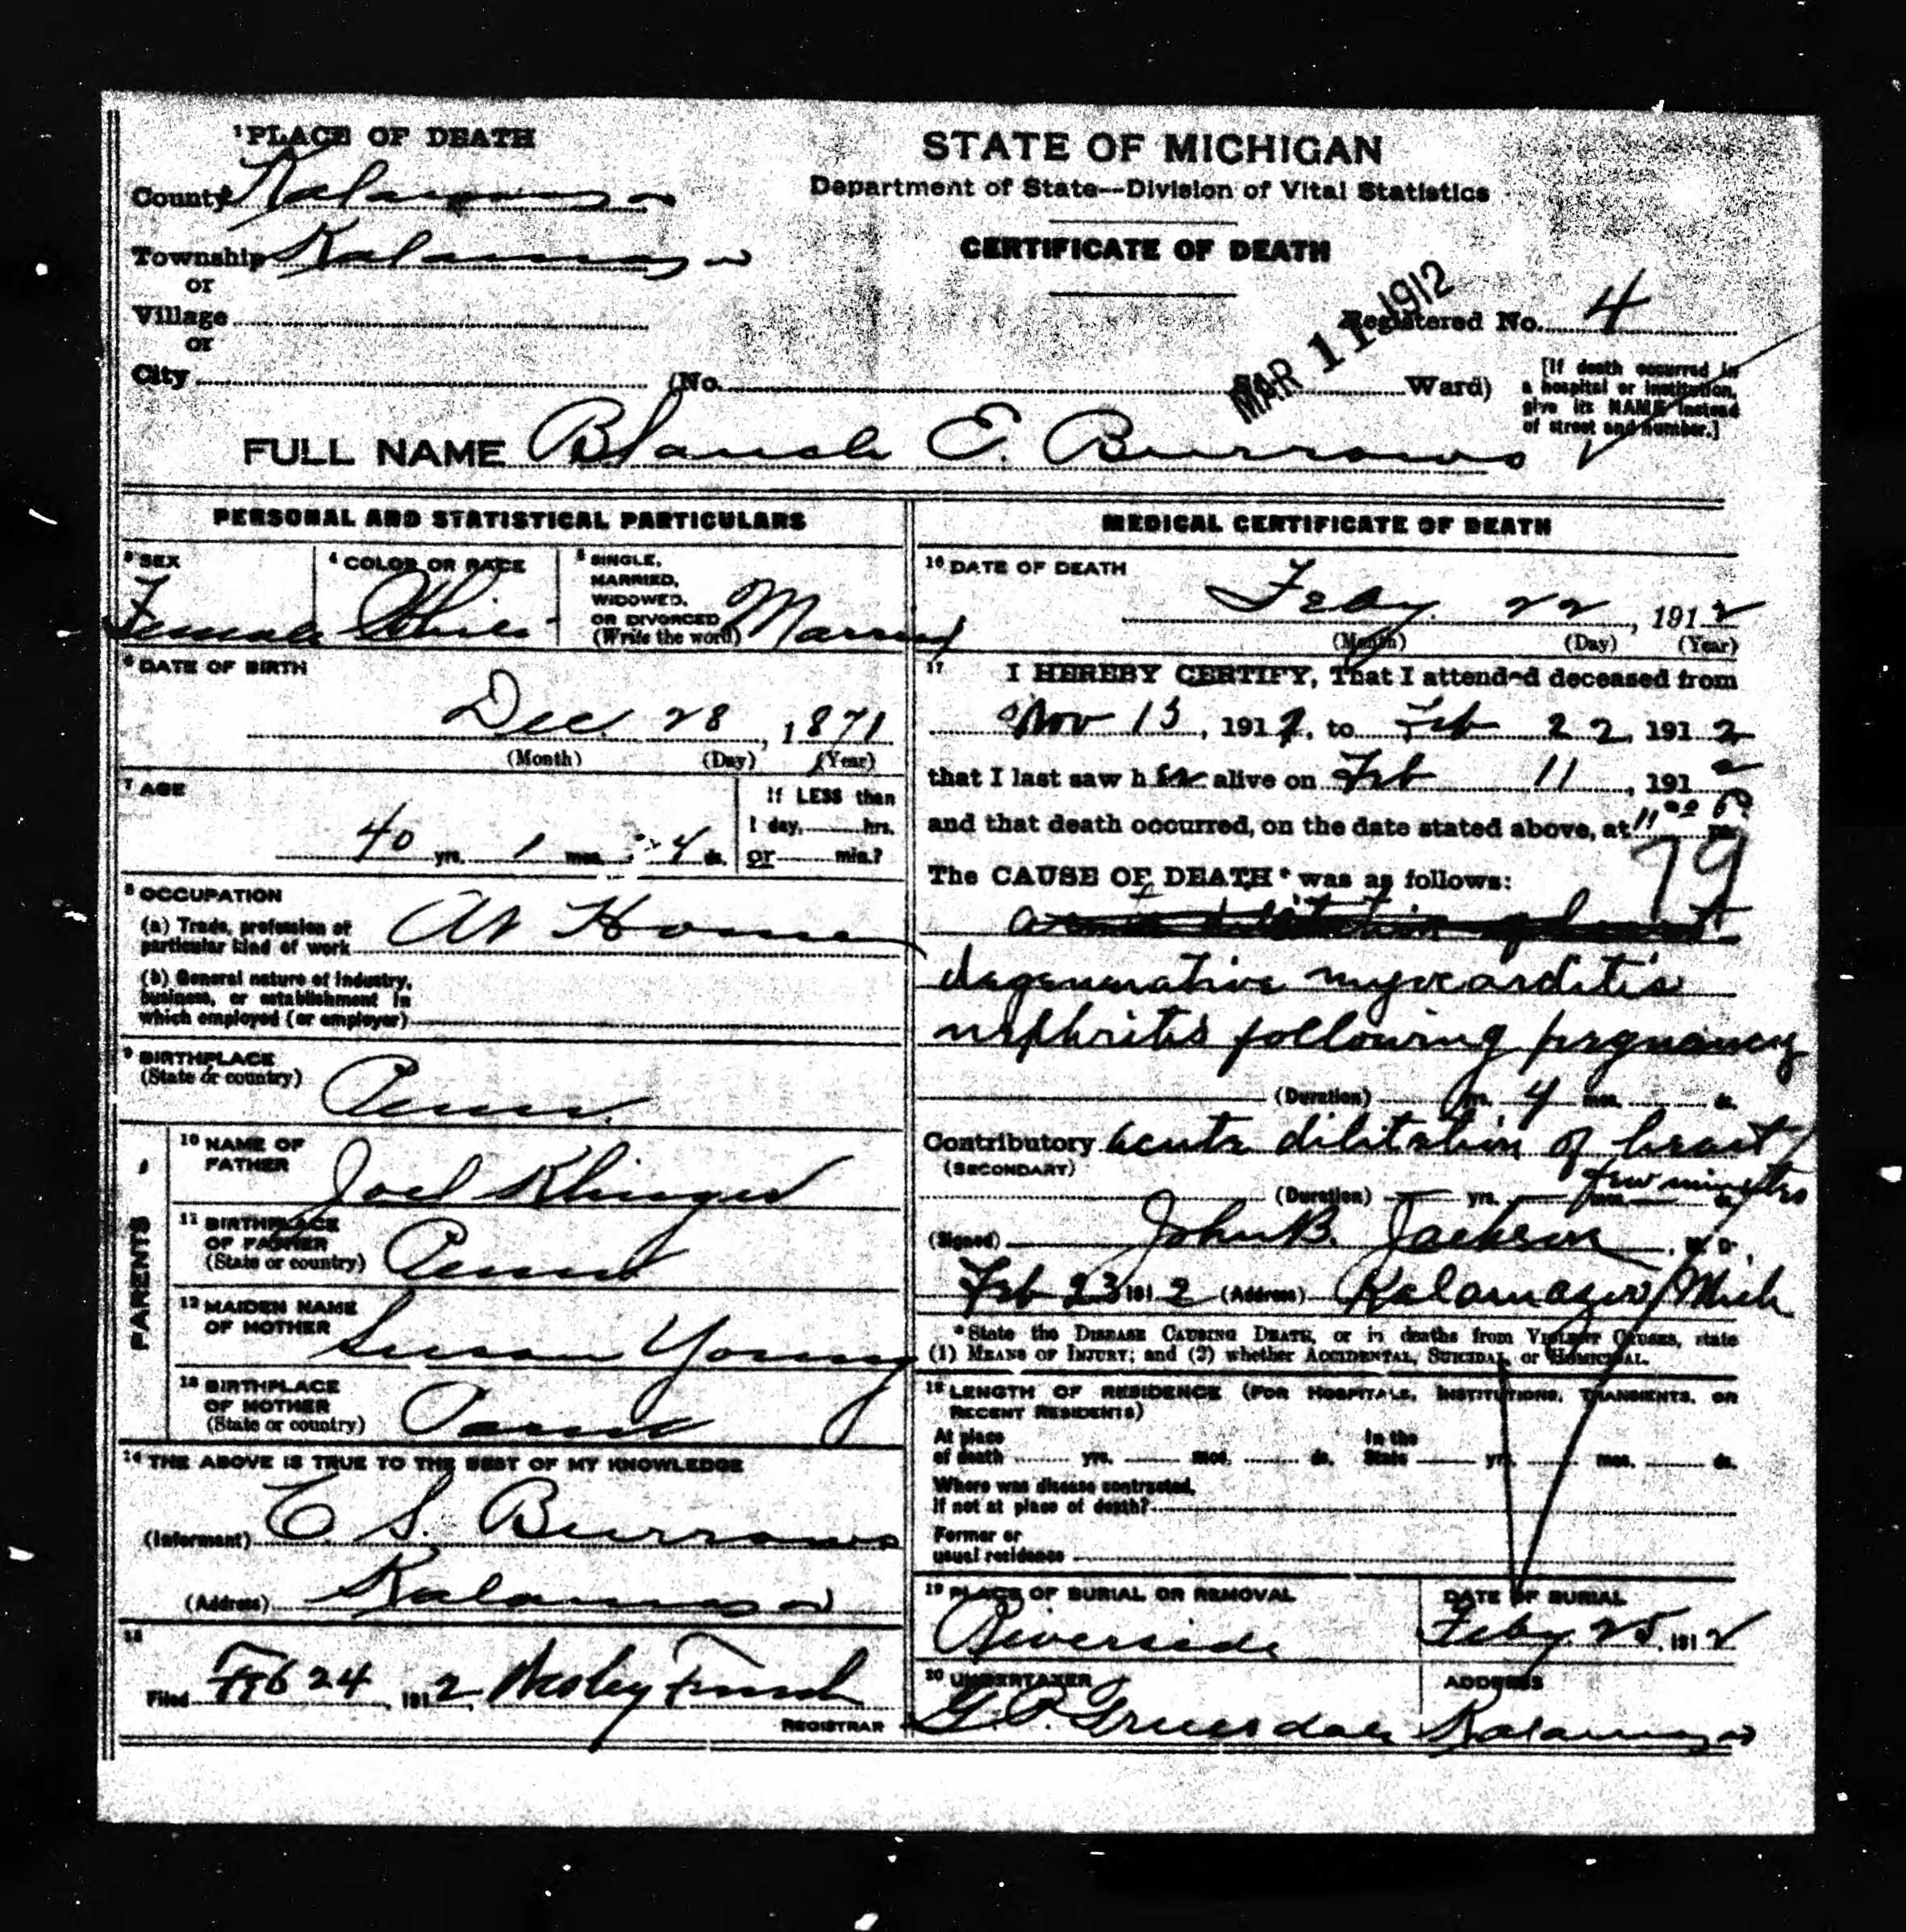 1 PLACE OF DEATH
County Kalamazoo
Township Kalamazoo
or
Village
or
City (No. Ward)
STATE OF MICHIGAN
Department of State—Division of Vital Statistics
CERTIFICATE OF DEATH
MAR 11 1912
Registered No. 4
[If death occurred in
a hospital or institution,
give its NAME instead
of street and number.]
FULL NAME Blanch E. Burrows
PERSONAL AND STATISTICAL PARTICULARS
3 SEX
Female
4 COLOR OR RACE
White
5 SINGLE,
MARRIED,
WIDOWED,
OR DIVORCED
(Write the word) Married
6 DATE OF BIRTH
Dec. 28, 1871
(Month) (Day) (Year)
7 AGE
40 yrs. 1 mos. 4 ds.
If LESS than
1 day, hrs.
or min.?
8 OCCUPATION
(a) Trade, profession or
particular kind of work At Home
(b) General nature of industry,
business, or establishment in
which employed (or employer)
9 BIRTHPLACE
(State or country) Penn.
PARENTS
10 NAME OF
FATHER Joel Klinger
11 BIRTHPLACE
OF FATHER
(State or country) Penn
12 MAIDEN NAME
OF MOTHER Susan Young
13 BIRTHPLACE
OF MOTHER
(State or country) Penn
14 THE ABOVE IS TRUE TO THE BEST OF MY KNOWLEDGE
(Informant) C S. Burrows
(Address) Kalamazoo
15
Filed Feb 24, 1912 Wesley French
REGISTRAR
MEDICAL CERTIFICATE OF DEATH
16 DATE OF DEATH
Feby. 22, 1912
(Month) (Day) (Year)
17 I HEREBY CERTIFY, That I attended deceased from
Nov 13, 191 , to Feb 22, 1912
that I last saw her alive on Feb 11, 1912
and that death occurred, on the date stated above, at 11 00 P m.
79
The CAUSE OF DEATH* was as follows:
degenerative myocarditis
nephritis following pregnancy
(Duration) yrs. 4 mos. ds.
Contributory acute dilitation of heart
(SECONDARY)
few minutes
(Duration) yrs. mos. ds.
(Signed) John B. Jackson, M. D.,
Feb 23 1912 (Address) Kalamazoo Mich
*State the DISEASE CAUSING DEATH, or in deaths from VIOLENT CAUSES, state
(1) MEANS OF INJURY; and (2) whether ACCIDENTAL, SUICIDAL, or HOMICIDAL.
18 LENGTH OF RESIDENCE (FOR HOSPITALS, INSTITUTIONS, TRANSIENTS, OR
RECENT RESIDENTS)
At place In the
of death yrs. mos. ds. State yrs. mos. ds.
Where was disease contracted,
if not at place of death?
Former or
usual residence
19 PLACE OF BURIAL OR REMOVAL
Riverside
DATE OF BURIAL
Feby. 25, 1912
20 UNDERTAKER
G. P. Truesdale
ADDRESS
Kalamazoo